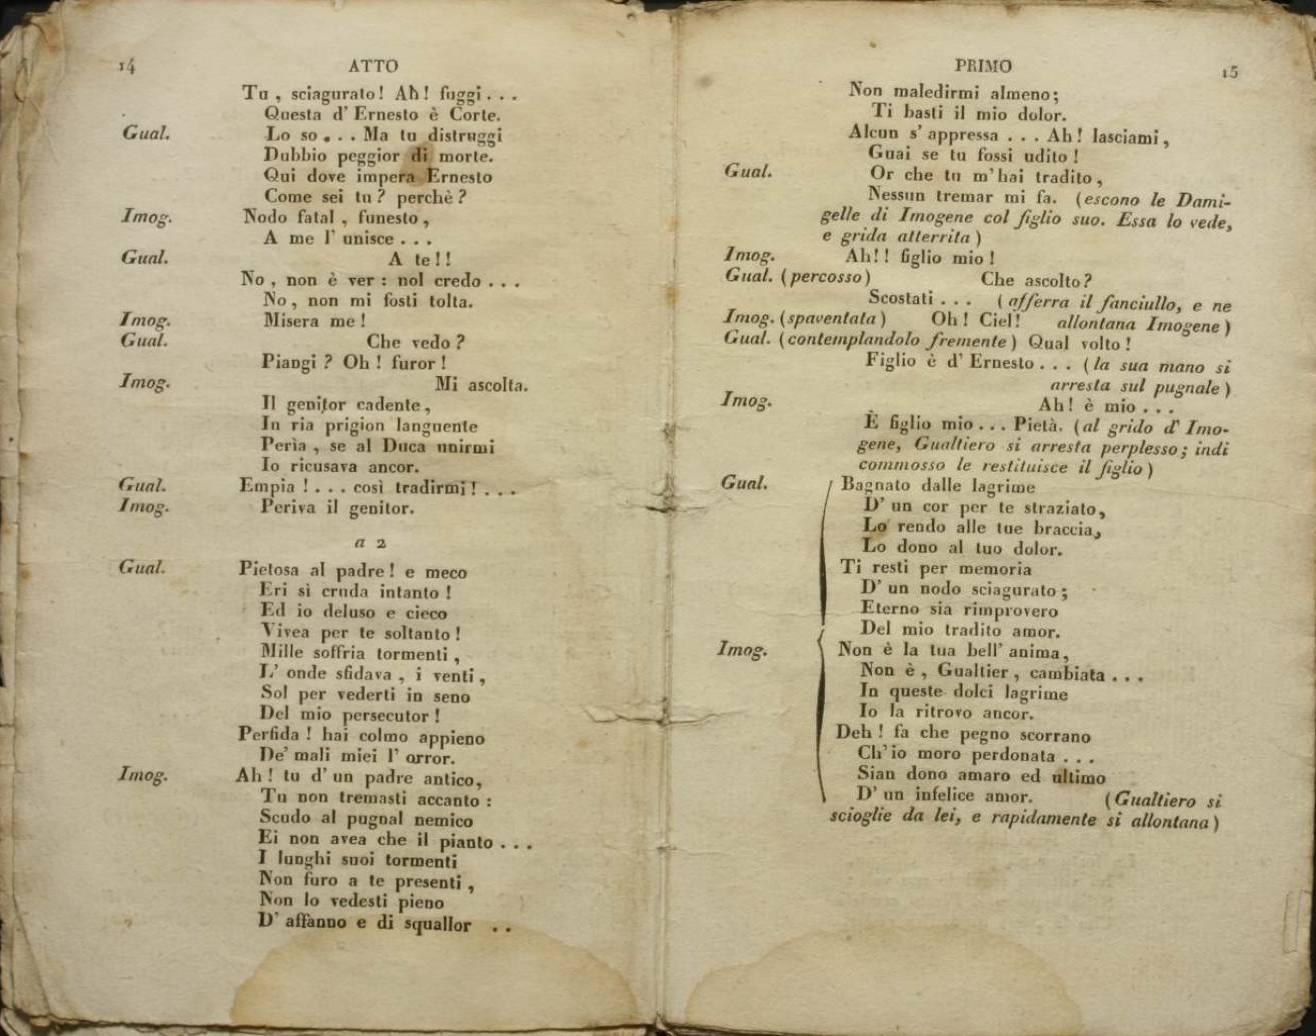 14
ATTO
Tu, sciagurato! Ah! fuggi...
Questa d' Ernesto è Corte.
Gual. Lo so... Ma tu distruggi
Dubbio peggior di morte.
Qui dove impera Ernesto
Come sei tu? perchè?
Imog. Nodo fatal, funesto,
A me l' unisce...
Gual. A te!!
No, non è ver: nol credo...
No, non mi fosti tolta.
Imog. Misera me!
Gual. Che vedo?
Piangi? Oh! furor!
Imog. Mi ascolta.
Il genitor cadente,
In ria prigion languente
Perìa, se al Duca unirmi
Io ricusava ancor.
Gual. Empia!... così tradirmi!...
Imog. Periva il genitor.
a 2
Gual. Pietosa al padre! e meco
Eri sì cruda intanto!
Ed io deluso e cieco
Vivea per te soltanto!
Mille soffria tormenti,
L' onde sfidava, i venti,
Sol per vederti in seno
Del mio persecutor!
Perfida! hai colmo appieno
De' mali miei l' orror.
Imog. Ah! tu d' un padre antico,
Tu non tremasti accanto:
Scudo al pugnal nemico
Ei non avea che il pianto...
I lunghi suoi tormenti
Non furo a te presenti,
Non lo vedesti pieno
D' affanno e di squallor ..
PRIMO
15
Non maledirmi almeno;
Ti basti il mio dolor.
Alcun s' appressa... Ah! lasciami,
Guai se tu fossi udito!
Gual. Or che tu m'hai tradito,
Nessun tremar mi fa. (escono le Dami-
gelle di Imogene col figlio suo. Essa lo vede,
e grida atterrita)
Imog. Ah!! figlio mio!
Gual. (percosso) Che ascolto?
Scostati... (afferra il fanciullo, e ne
Imog. (spaventata) Oh! Ciel! allontana Imogene)
Gual. (contemplandolo fremente) Qual volto!
Figlio è d' Ernesto... (la sua mano si
arresta sul pugnale)
Imog. Ah! è mio...
È figlio mio... Pietà. (al grido d' Imo-
gene, Gualtiero si arresta perplesso; indi
commosso le restituisce il figlio)
Gual. Bagnato dalle lagrime
D' un cor per te straziato,
Lo rendo alle tue braccia,
Lo dono al tuo dolor.
Ti resti per memoria
D' un nodo sciagurato;
Eterno sia rimprovero
Del mio tradito amor.
Imog. Non è la tua bell' anima,
Non è, Gualtier, cambiata...
In queste dolci lagrime
Io la ritrovo ancor.
Deh! fa che pegno scorrano
Ch' io moro perdonata...
Sian dono amaro ed ultimo
D' un infelice amor. (Gualtiero si
scioglie da lei, e rapidamente si allontana)